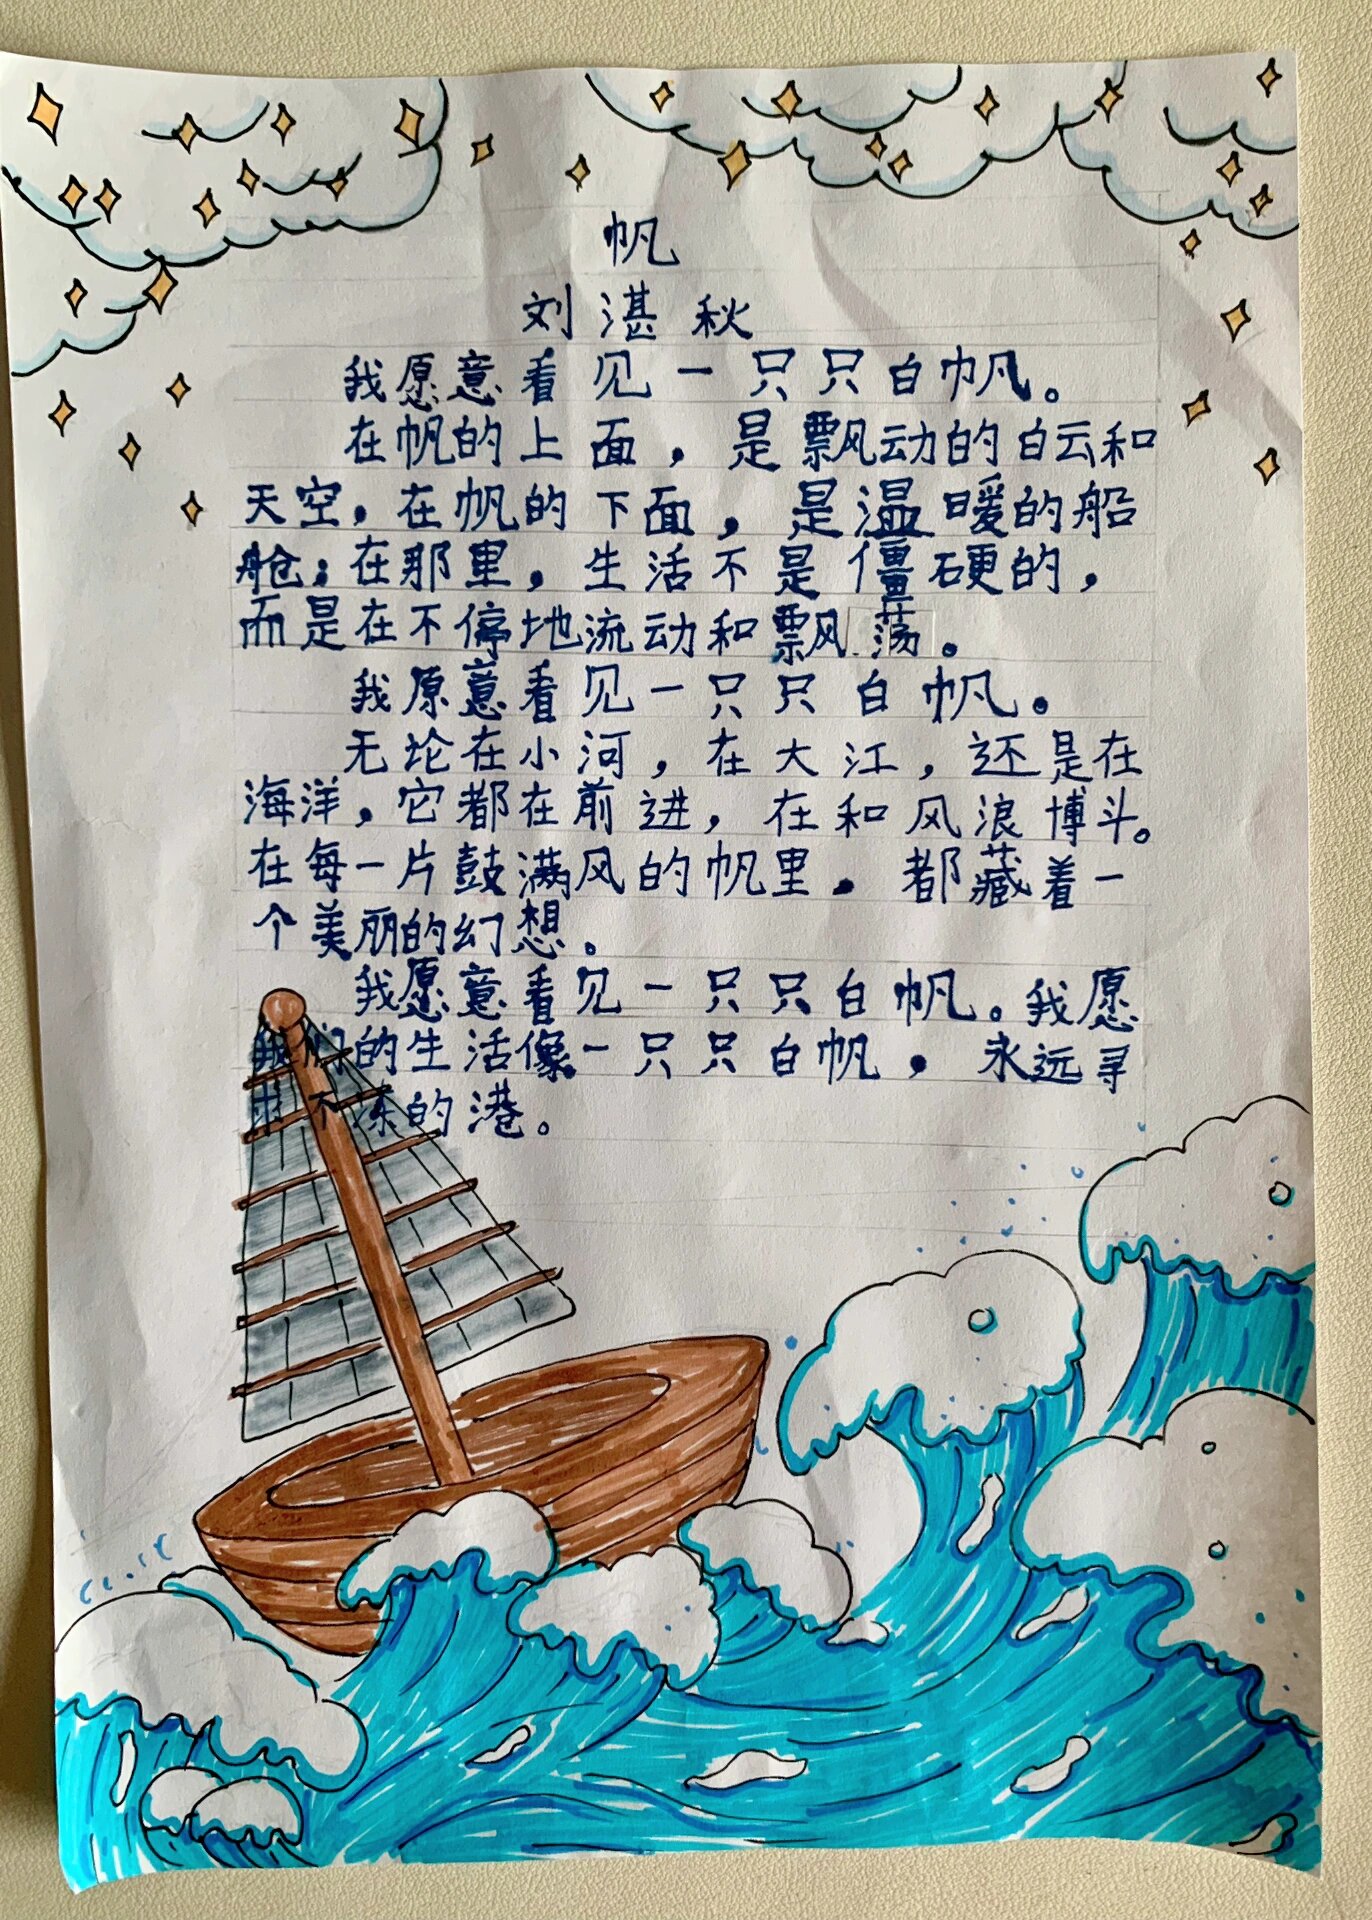 帆
刘湛秋
我愿意看见一只只白帆。
在帆的上面，是飘动的白云和
天空，在帆的下面，是温暖的船
舱；在那里，生活不是僵硬的，
而是在不停地流动和飘荡。
我原意看见一只只白帆。
无论在小河，在大江，还是在
海洋，它都在前进，在和风浪博斗。
在每一片鼓满风的帆里，都藏着一
个美丽的幻想。
我愿意看见一只只白帆。我愿
我们的生活像一只只白帆，永远寻
求不冻的港。